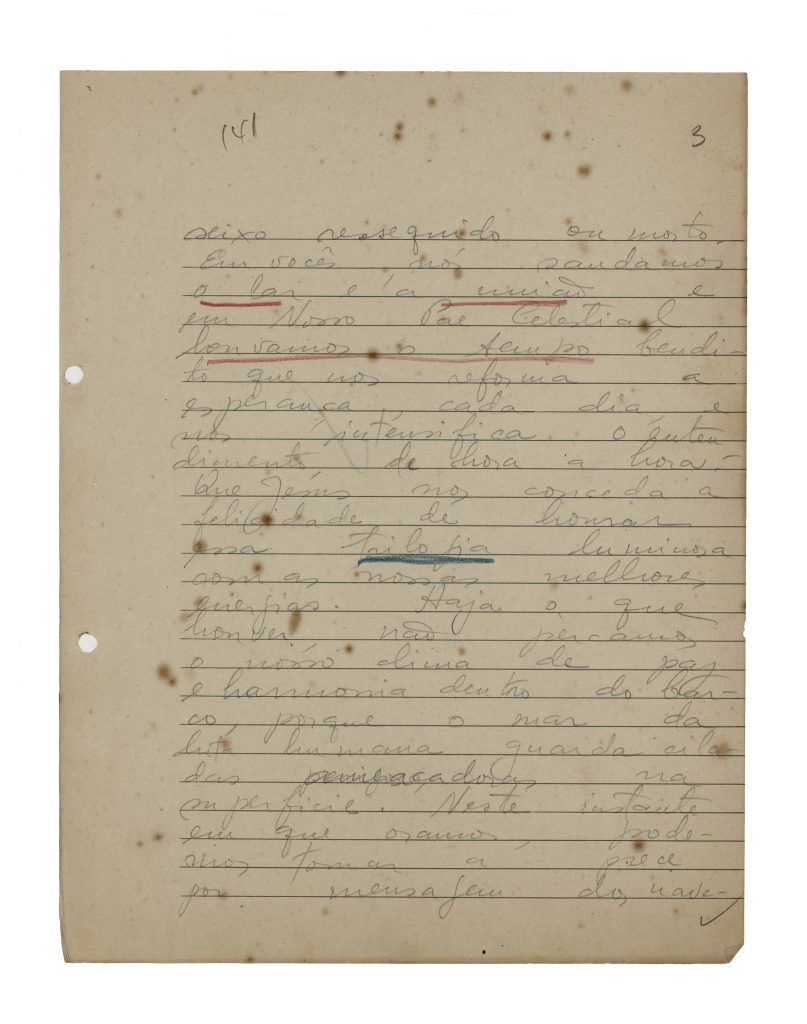 141 3
seixo ressequido ou morto.
Em vocês nós saudamos
o lar e a união e
em Nosso Pae Celestial
louvamos o tempo bendi-
to que nos reforma a
esperança, cada dia, e
nos intensifica o enten
dimento de hora a hora.
Que Jesús nos conceda a
felicidade de honrar
essa trilogia luminosa
com as nossas melhores
energias. Haja o que
houver, não percamos
o nosso clima de paz
e harmonia dentro do bar-
co, porque o mar da
luta humana guarda cila-
das ameaçadoras na
superficie. Neste instante
em que oramos, pode-
mos tomar a prece
por mensagem dos nave-